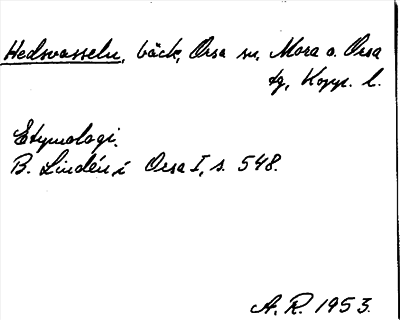 Hedsvasseln, bäck, Orsa sn, Mora o. Orsa
tg, Kopp. l.
Etymologi.
B. Lindén i Orsa I, s. 548.
A. R. 1953.